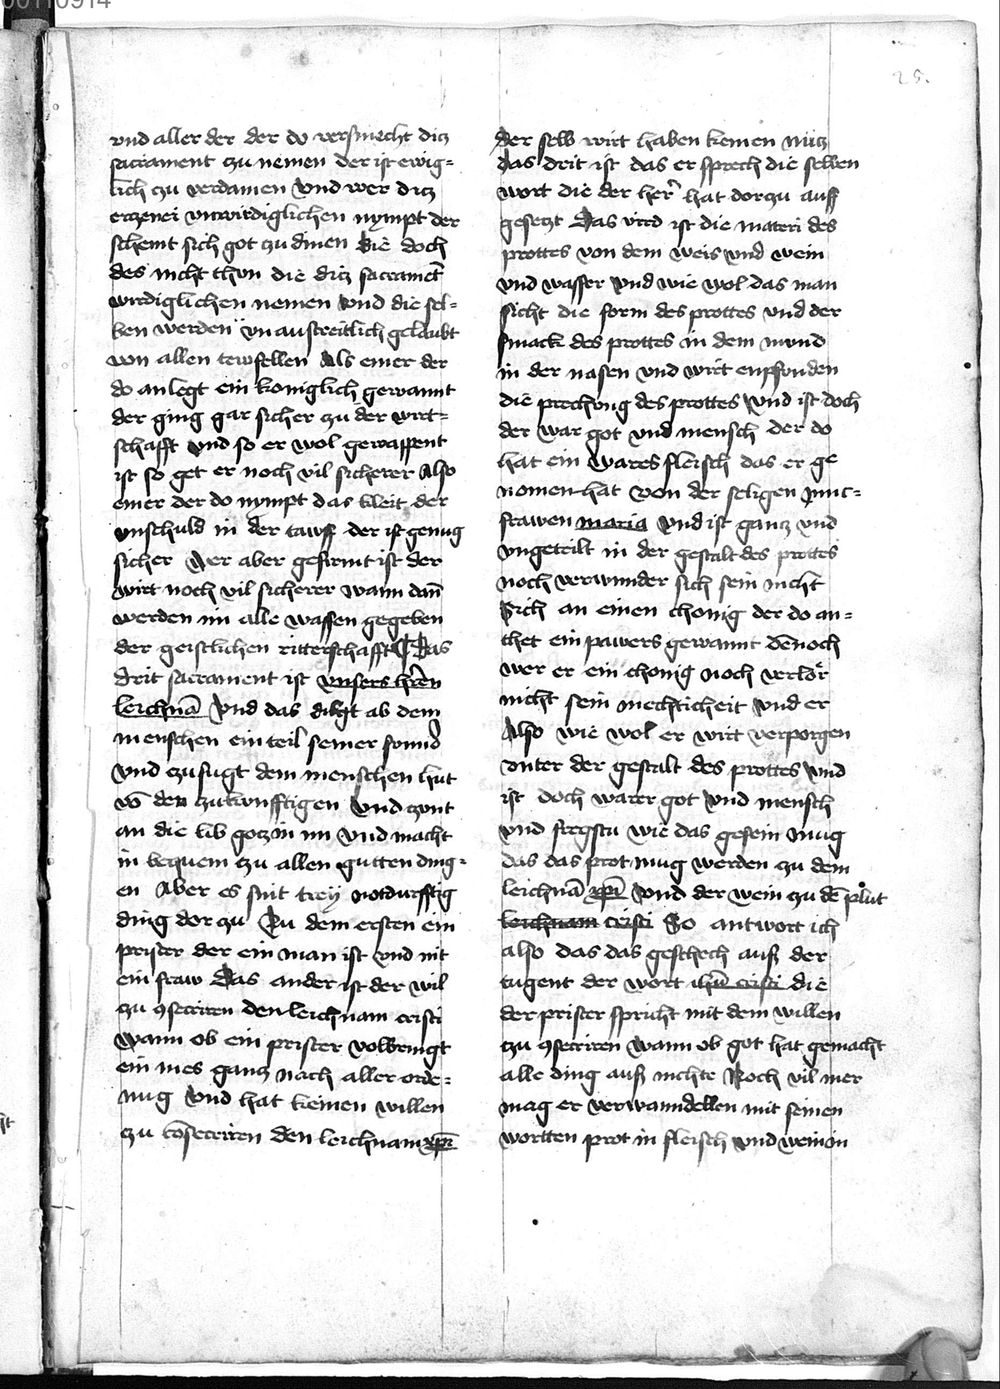 00110914
25.
vnd aller der der do versmecht dicz
sacrament czu nemen der ist ewig=
lich czu verdamen Vnd wer dicz
erczenei vnwirdiglichen nympt der
schemt sich got czu dinen Die doch
des nicht thvn die dicz sacramēt
wirdiglichen nemen Vnd die sel=
ben werden vnaustreitlich gelaubt
von allen tewfellen Als einer der
do anlegt ein koniglich gewannt
der ging gar sicher zu der wirt=
schafft Vnd so er wol gewappent
ist so get er noch vil sicherer Also
einer der do nympt das kleit der
vnschuld in der tawff der ist genug
sicher Wer aber gefirmt ist der
wirt noch vil sicherer wann dan̄
werden im alle waffen gegeben
der geistlichen ritterschafft ¶ Das
drit sacrament ist vnsers hrēn
leichnā Vnd das dilgt ab dem
menschen ein teil seiner sunnd
Vnd czufugt dem menschen hut
vō den zukunfftigen Vnd czunt
an die lib gocz in im Vnd macht
in bequem czu allen gutten ding=
en Aber es sint trey notdurfftig
ding dor zu Zu dem ersten ein
prister der ein man ist vnd nit
ein fraw Das ander ist der wil
zu 9secriren den leichnam cristi
Wann ob ein prister volbringt
ein mes gancz nach aller orde=
nug Vnd hat keinen willen
zu cōsecriren den leichnam xp̄i
der selb wirt haben keinen nücz
Das drit ist das er sprech die selben
wort die der her̄ hat dorzu auff
geseczt Das vird ist die materi des
prottes von dem weis vnd wein
vnd wasser Vnd wie wol das man
sicht die form des prottes vnd der
smack des prottes in dem mvnd
in der nasen vnd wirt enpfonden
die prechvng des prottes Vnd ist doch
der war got vnd mensch der do
hat ein wares fleisch das er ge
nomen hat von der seligen Junc=
frawen maria Vnd ist gancz vnd
vngeteilt in der gestalt des prottes
noch verwunder sich sein nicht
Sich an einen chonig der do an=
thet ein pawers gewannt dēnoch
wer er ein chonig noch verlör
nicht sein mechticheit Vnd er
Also wie wol er wirt verporgen
vnter der gestalt des prottes Vnd
ist doch warer got Vnd mensch
vnd fregstu wie das gesein mug
das das prot mug werden zu dem
leichnā xp̄i Vnd der wein zu dē plut
leichnam cristi So antwort ich
also das das geschech auß der
tugent der wort ihū cristi die
der prister spricht mit dem willen
czu 9secriren Wann ob got hat gemacht
alle ding auß nichte Noch vil mer
mag er verwanndellen mit seinen
wortten prot in fleisch vnd wein in